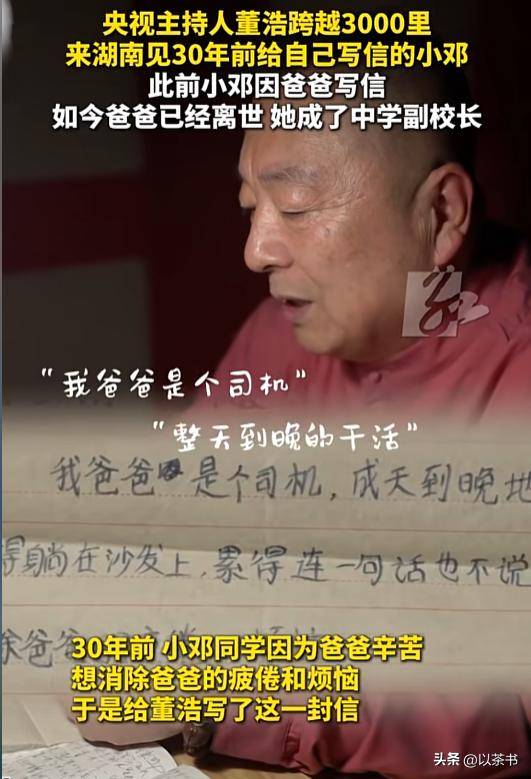 央视主持人董浩跨越3000里
来湖南见30年前给自己写信的小邓
此前小邓因爸爸写信
如今爸爸已经离世 她成了中学副校长
“我爸爸是个司机”
“整天到晚的干活”
我爸爸是个司机，成天到晚地
得躺在沙发上，累得连一句话也不说
除爸爸
30年前 小邓同学因为爸爸辛苦
想消除爸爸的疲倦和烦恼
于是给董浩写了这一封信
头条 @以茶书